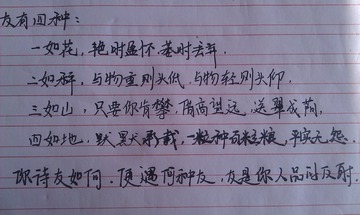 友有四种：
一如花，艳时盈怀，萎时丢弃．
二如秤，与物重则头低，与物轻则头仰．
三如山，只要你肯攀，借高望远，送翠成荫．
四如地，默默承载，一粒种百粒粮，平实无怨．
际诗友如何．便遇何种友，友是你人品的反射．